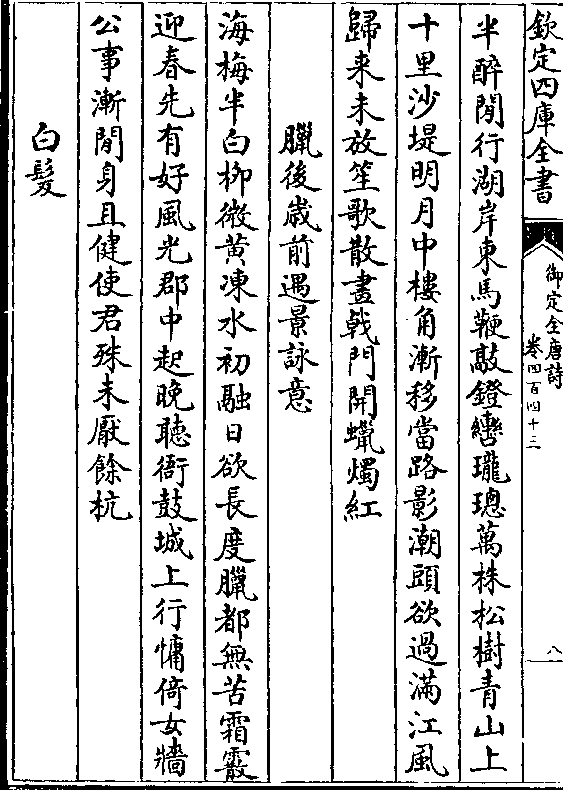 欽定四庫全書
御定全唐詩
卷四百四十三
八
半醉閒行湖岸東馬鞭敲鐙轡瓏璁萬株松樹青山上
十里沙堤明月中樓角漸移當路影潮頭欲過滿江風
歸来未放笙歌散畫㦸門開蠟燭紅
臘後歲前遇景詠意
海梅半白柳微黃凍水初融日欲長度臘都無苦霜霰
迎春先有好風光郡中起晚聽衙鼓城上行慵倚女牆
公事漸閒身且健使君殊未厭餘杭
白髮